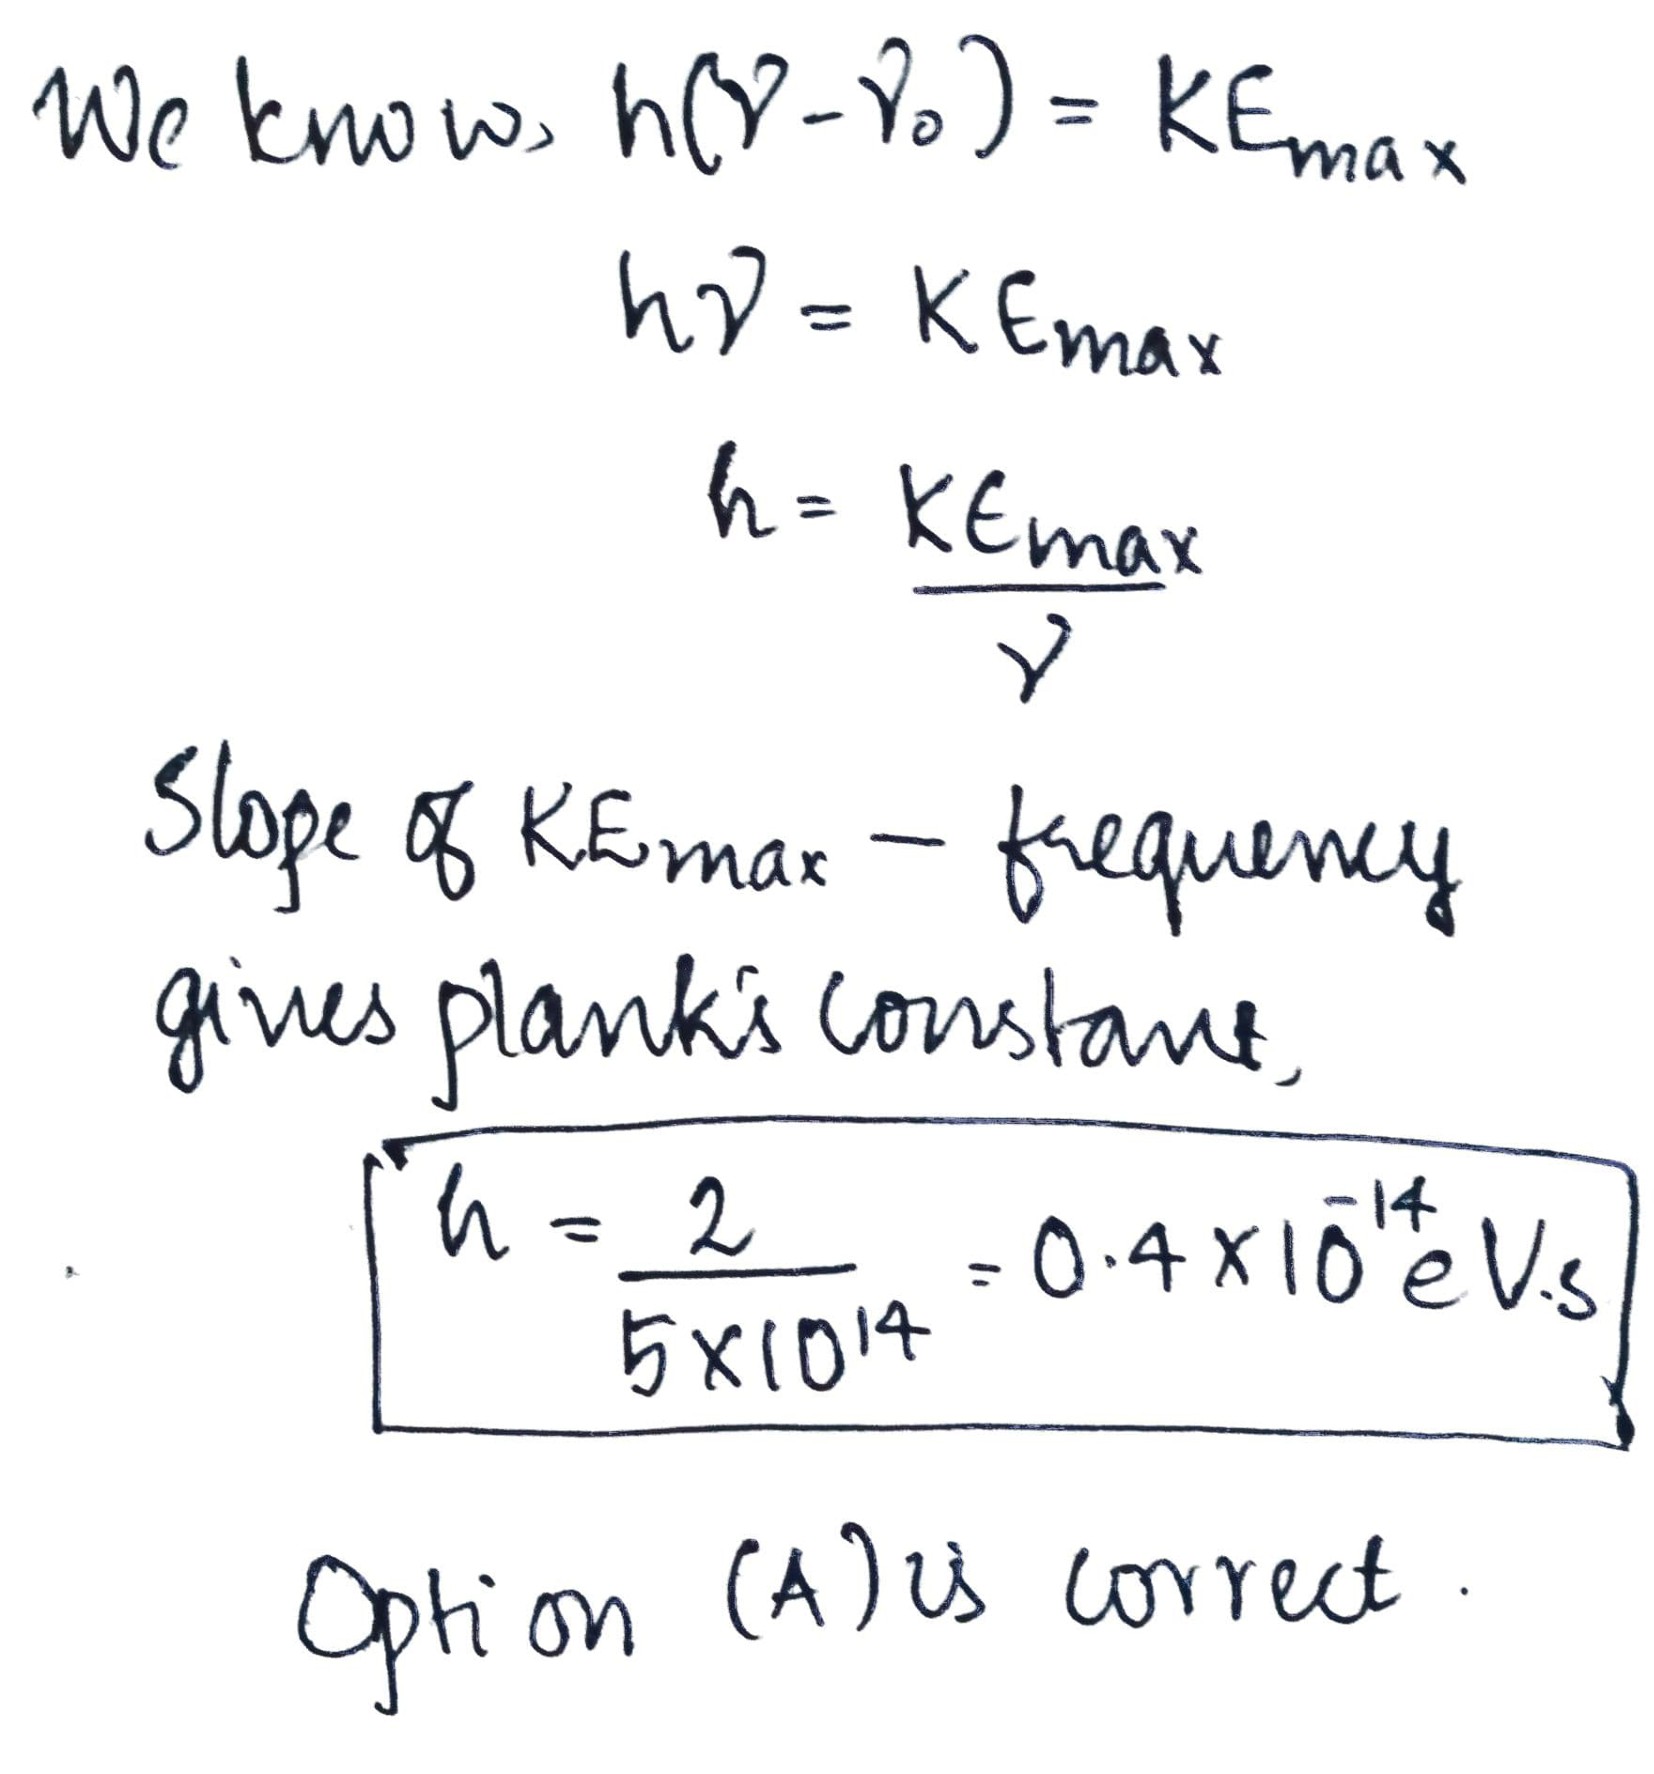 We know, h(ν-ν₀) = KEmax
hν = KEmax
h = KEmax
ν
Slope of KEmax – frequency
gives plank's constant,
h = 2 = 0.4×10⁻¹⁴ eV.s
5×10¹⁴
Option (A) is correct.